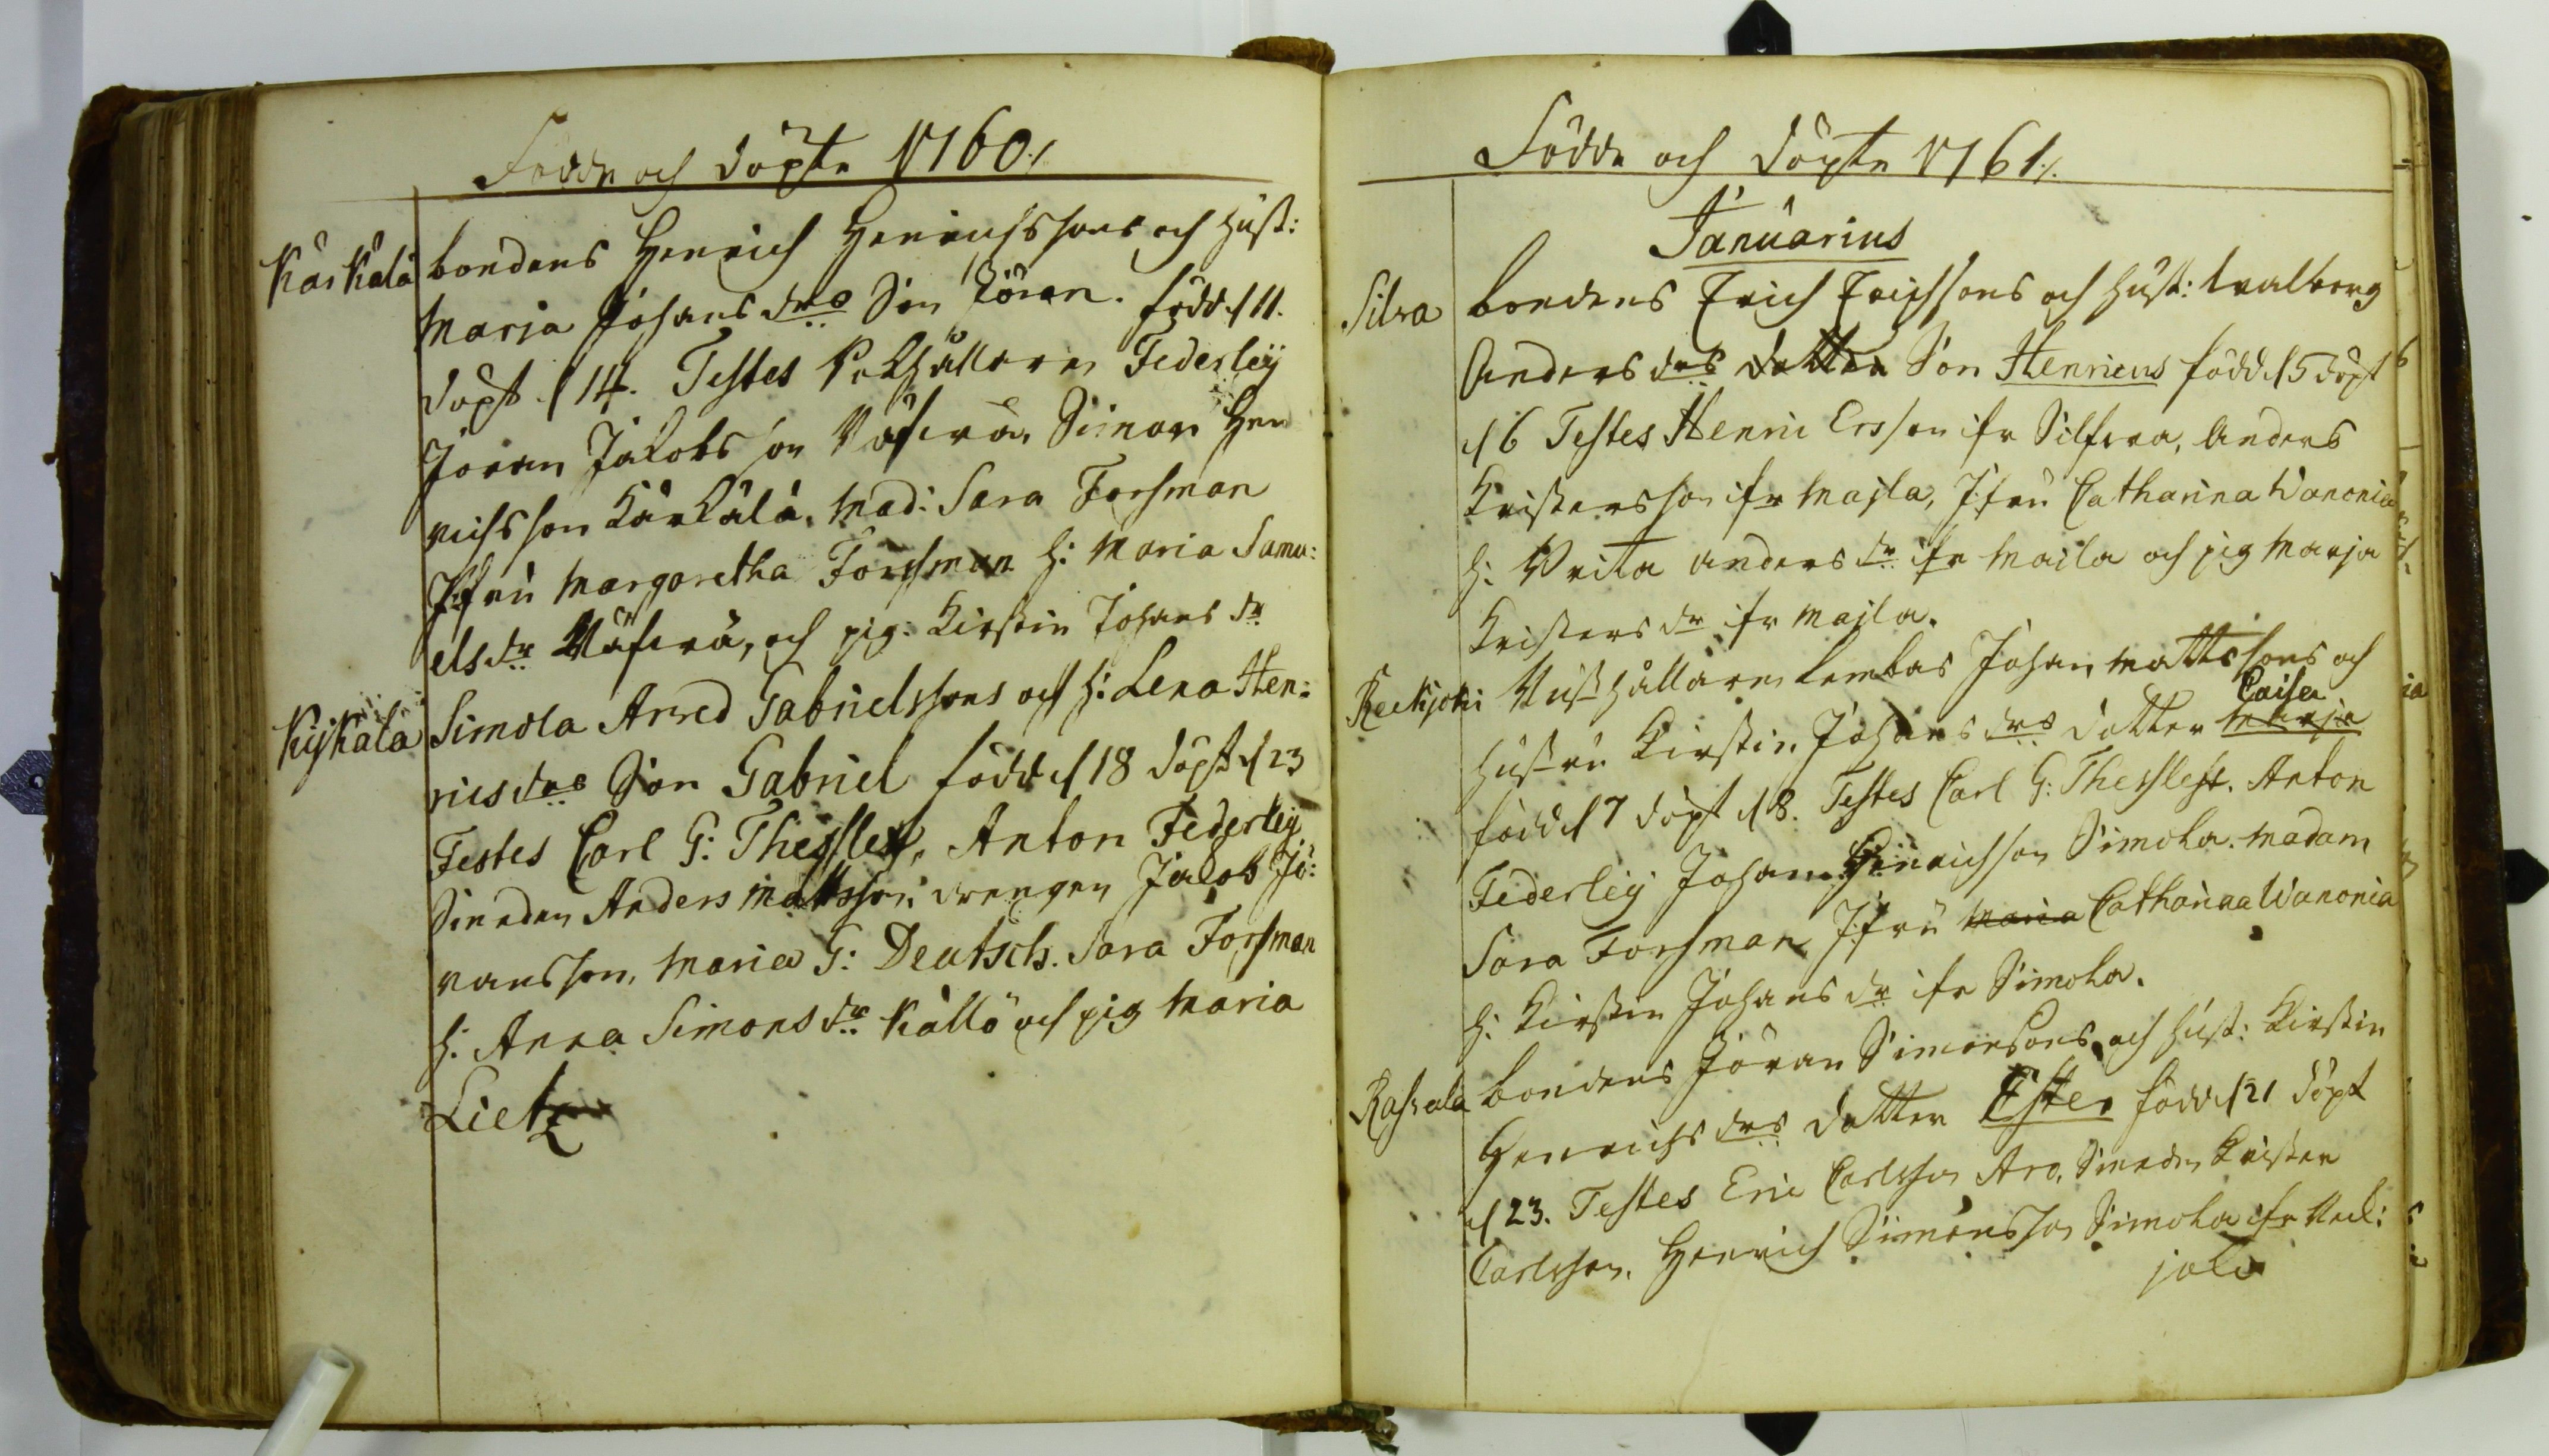 Födde och döpte 1760./.
Kärkälä bondens Henrich Henrichssons och hust:
Maria Johansdrs Son Jöran. född d 11.
döpt d 14. Testes Rusthållaren Federleij
Jöran Jakobsson Simon Hen
richsson Kärkälä. Mad: Sara Forsman
Jfru Margaretha Forssman h: Maria Samu:
elsdr och pig: Kirstin Johansdr
Kijkala Simola Arved Gabrielssons och h: Lena Hen:
ricsdrs Son Gabriel född d 18 döpt d 23
Testes Carl G: Thesslef, Anton Federleij
Smeden Anders Mattsson, drengen Jacob Jö:
ransson, Maria G: Deutsch. Sara Forsman
h: Anna Simonsdr Källö och pig Maria
Lietz
Födde och döpte 1761./.
Januarius
Silva bondens Erich Erichssons och hust: Walborg
Andersdrs dotter Son Henricus född d 5 döpt
d 6 Testes Henric Ersson ifr Silfva, Anders
Kristersson ifr Maila, Jfru Catharina Wanonia
h: Brita Andersdr ifr Maila och pig Marja
Kristersdr ifr Majla.
Reckijoki Rusthållaren Lembas Johan Mattssons och
Caisa
hustru Kirstin Johansdrs dotter Marja
född d 7 döpt d 8. Testes Carl G: Thesslef. Anton
Federleij Johan Henrichsson Simola. Madam
Sara Forsman Jfru Maria Catharina Wanonia
h: Kirstin Johansdr ifr Simola.
Rahvala bondens Jöran Simonsons och hust: Kirstin
Henrichsdrs dotter Ester född d 21 döpt
d 23. Testes Eric Carlsson Aro, Smeden Krister
Carlsson. Henrich Simonsson Simola ifr Reck:
joki